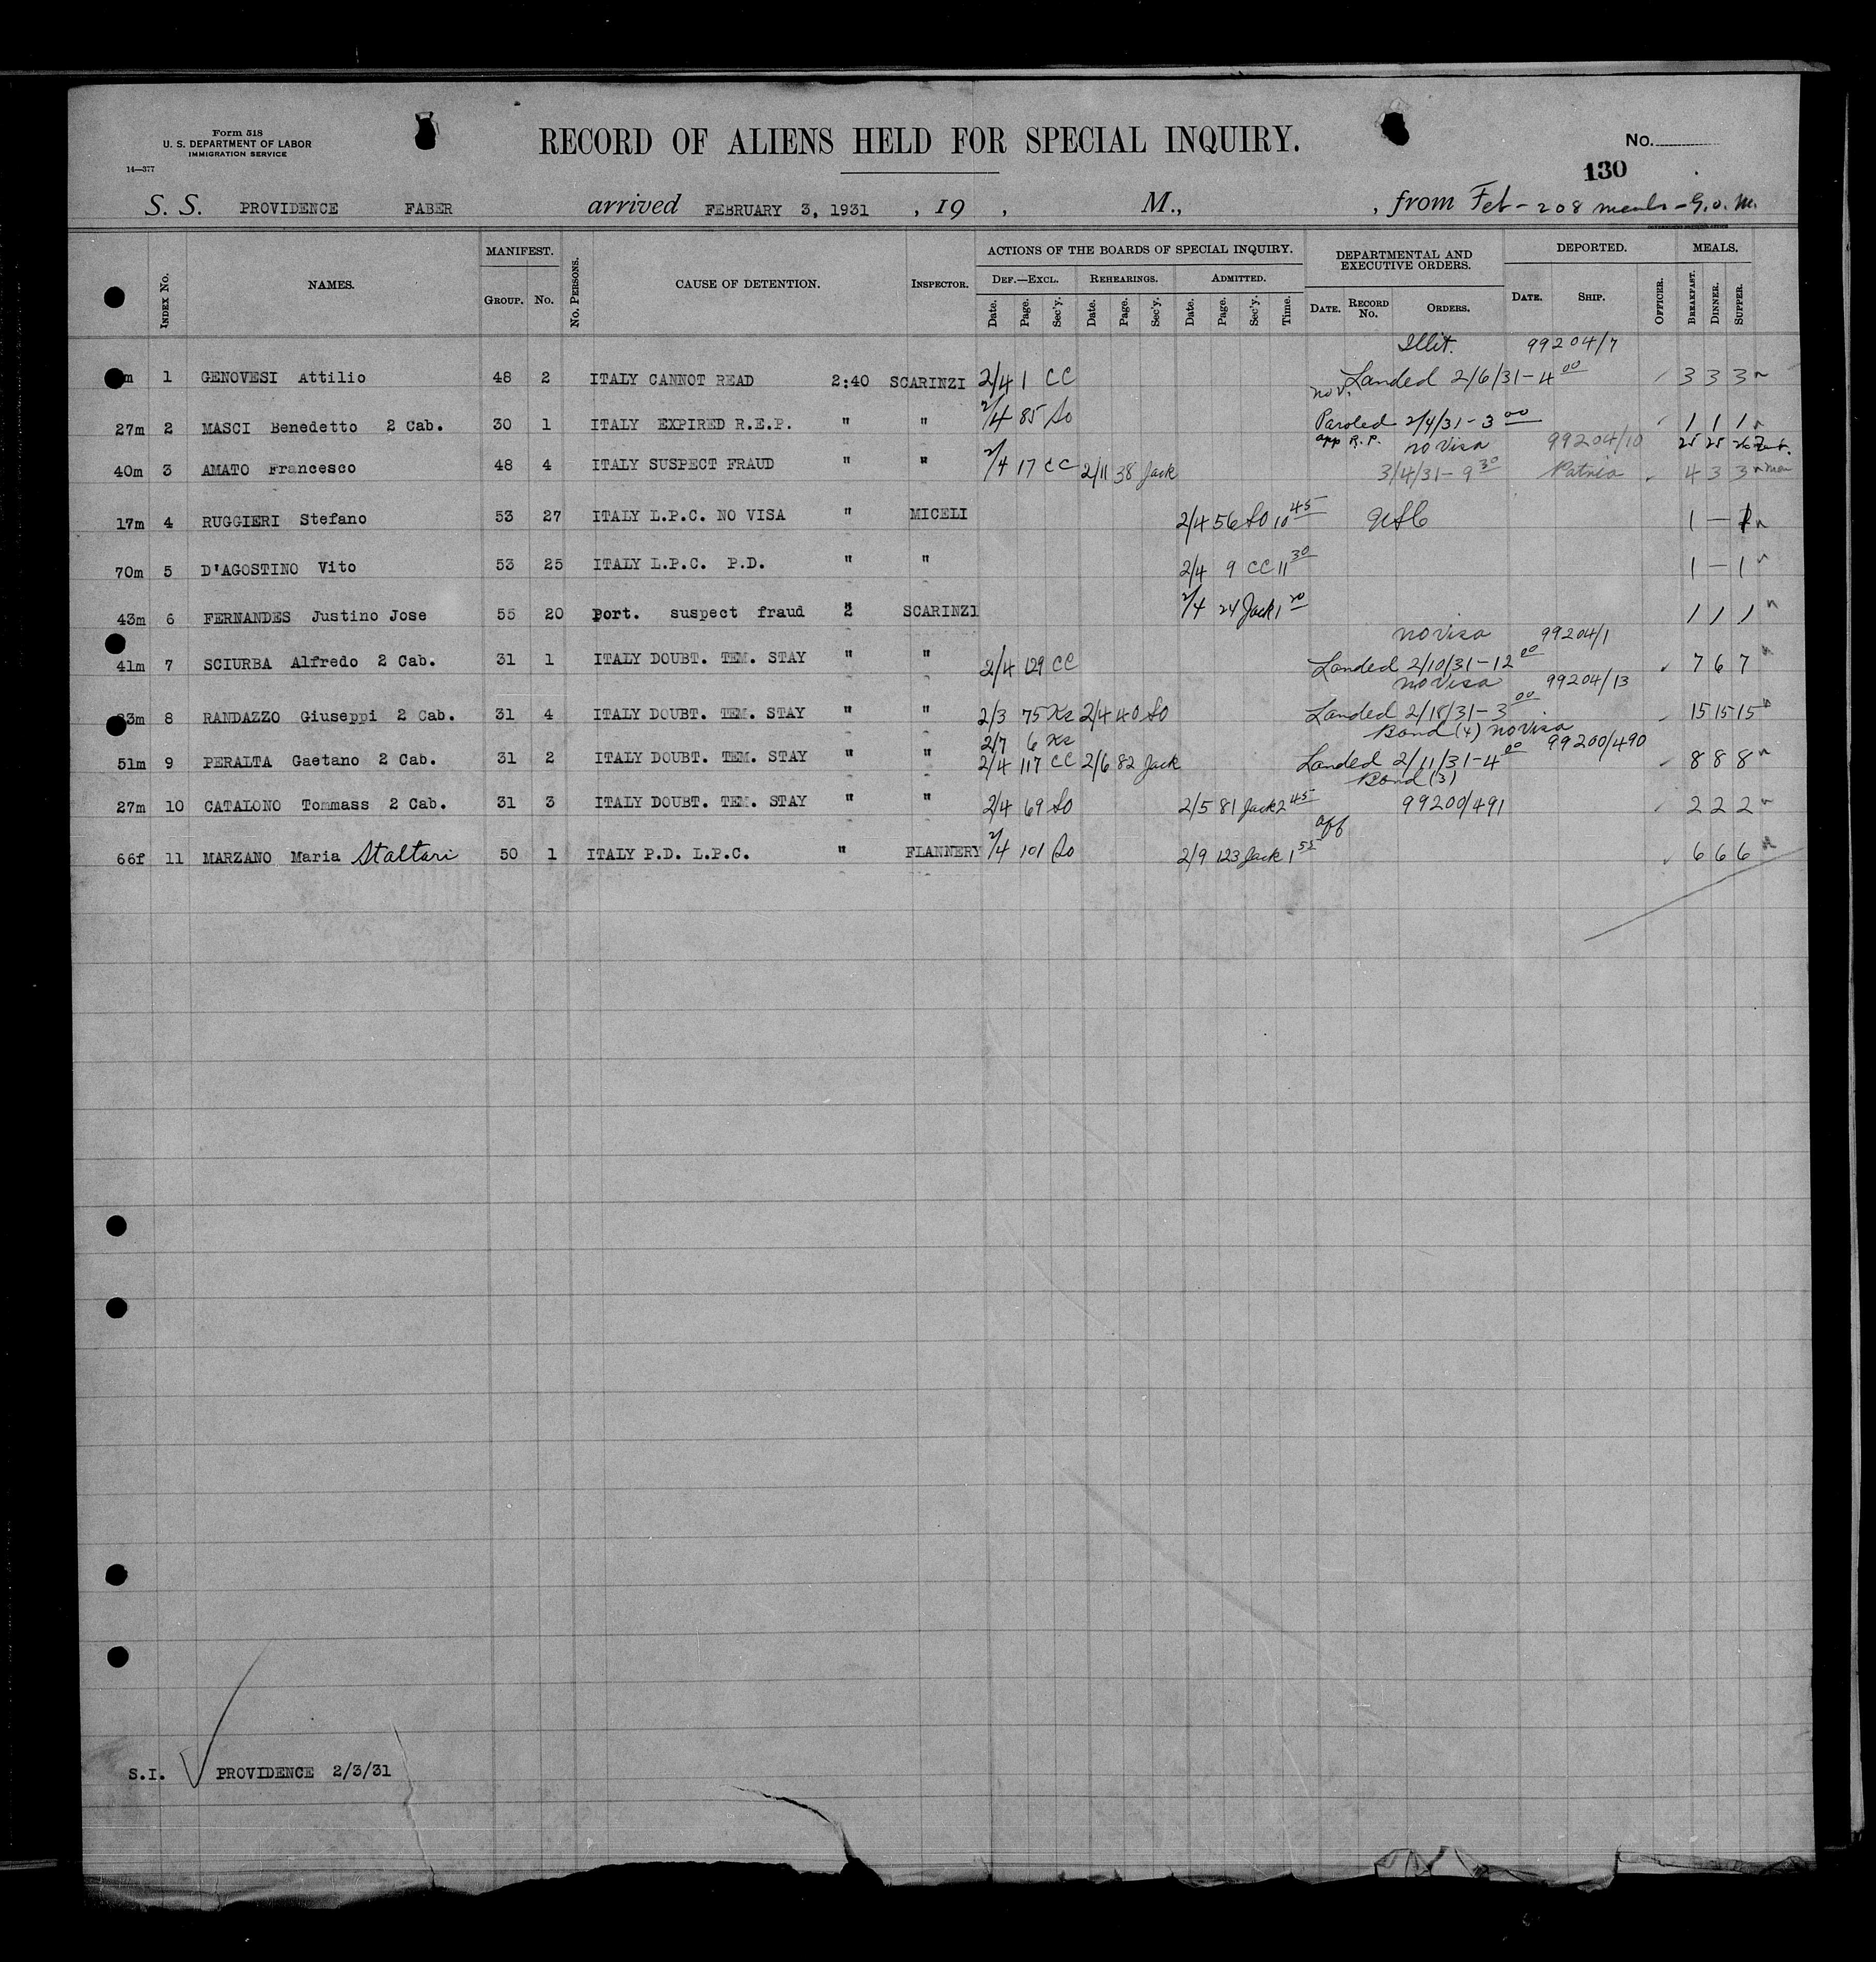 Form 518
U. S. DEPARTMENT OF LABOR
IMMIGRATION SERVICE
14—377
RECORD OF ALIENS HELD FOR SPECIAL INQUIRY.
No.
130
S. S. PROVIDENCE FABER arrived FEBRUARY 3, 1931 , 19 , M., , from Feb - 208 meals - G.o.M.
INDEX No. NAMES. MANIFEST. GROUP. No. No. PERSONS. CAUSE OF DETENTION. INSPECTOR. ACTIONS OF THE BOARDS OF SPECIAL INQUIRY. DEPARTMENTAL AND EXECUTIVE ORDERS. DEPORTED. MEALS.
DEF.—EXCL. REHEARINGS. ADMITTED.
Date. Page. Sec'y. Date. Page. Sec'y. Date. Page. Sec'y. Time. DATE. RECORD No. ORDERS. DATE. SHIP. OFFICER. BREAKFAST. DINNER. SUPPER.
Illit. 99204/7
m 1 GENOVESI Attilio 48 2 ITALY CANNOT READ 2:40 SCARINZI 2/4 1 CC nov. Landed 2/6/31 - 4 00 3 3 3
27m 2 MASCI Benedetto 2 Cab. 30 1 ITALY EXPIRED R.E.P. " " 2/4 85 So Paroled 2/4/31 - 3 00 1 1 1
app R.P. no Visa 99204/10 25 25 26 Feb.
40m 3 AMATO Francesco 48 4 ITALY SUSPECT FRAUD " " 2/4 17 CC 2/11 38 Jack 3/4/31 - 9 30 Patria 4 3 3 Mar
17m 4 RUGGIERI Stefano 53 27 ITALY L.P.C. NO VISA " MICELI 2/4 56 So 10 45 1 — 1
70m 5 D'AGOSTINO Vito 53 25 ITALY L.P.C. P.D. " " 2/4 9 CC 11 30 1 — 1
43m 6 FERNANDES Justino Jose 55 20 port. suspect fraud 2 SCARINZI 2/4 24 Jack 1 20 1 1 1
no visa 99204/1
41m 7 SCIURBA Alfredo 2 Cab. 31 1 ITALY DOUBT. TEM. STAY " " 2/4 129 CC Landed 2/10/31 - 12 00 7 6 7
no visa 99204/13
33m 8 RANDAZZO Giuseppi 2 Cab. 31 4 ITALY DOUBT. TEM. STAY " " 2/3 75 Ks 2/4 40 So Landed 2/18/31 - 3 00 15 15 15
2/7 6 Ks Bond (4) no visa 99200/490
51m 9 PERALTA Gaetano 2 Cab. 31 2 ITALY DOUBT. TEM. STAY " " 2/4 117 CC 2/6 82 Jack Landed 2/11/31 - 4 00 8 8 8
Bond (3)
27m 10 CATALONO Tommass 2 Cab. 31 3 ITALY DOUBT. TEM. STAY " " 2/4 69 So 2/5 81 Jack 2 45 99200/491 2 2 2
aff
66f 11 MARZANO Maria Staltari 50 1 ITALY P.D. L.P.C. " FLANNERY 2/4 101 So 2/9 123 Jack 1 55 6 6 6
S.I. PROVIDENCE 2/3/31